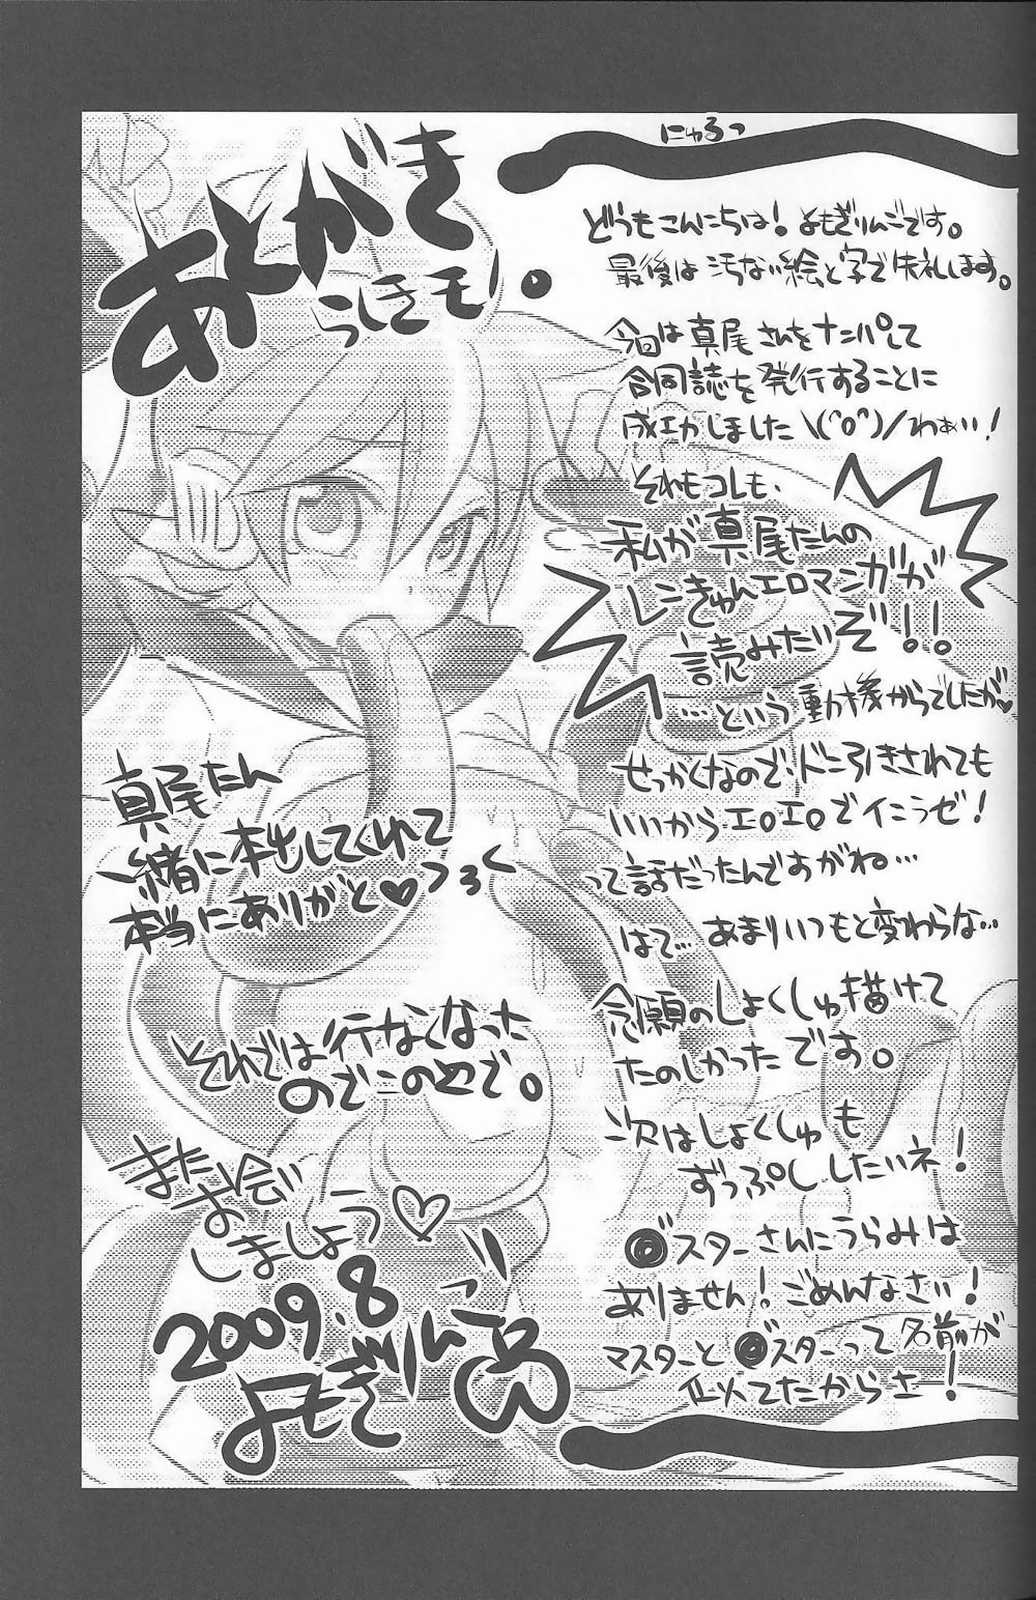 あとがき
らしきモノ。
にゅるっ
どうもこんにちは!よもぎりんごです。
最後は汚ない絵と字で失礼します。
今回は真尾さんをナンパして
合同誌を発行することに
成功しました\(^o^)/わぁい!
それもコレも、
私が真尾たんの
レンきゅんエロマンガが
読みたいぞ!!
…という動機からでしたが♥
せっかくなので、ドン引きされても
いいからエロエロでイこうぜ!
って話だったんですがね…
はて…あまりいつもと変わらな…
念願のしょくしゅ描けて
たのしかったです。
次はしょくしゅも
ずっぷししたいネ!
◎スターさんにうらみは
ありません!ごめんなさい!
マスターと◎スターって名前が
似てたからさ!
真尾たん
一緒に本出してくれて
本当にありがと♡
それでは行なくなった
のでこのへんで。
また
お会い
しましょう♡
2009.8
よもぎりんご